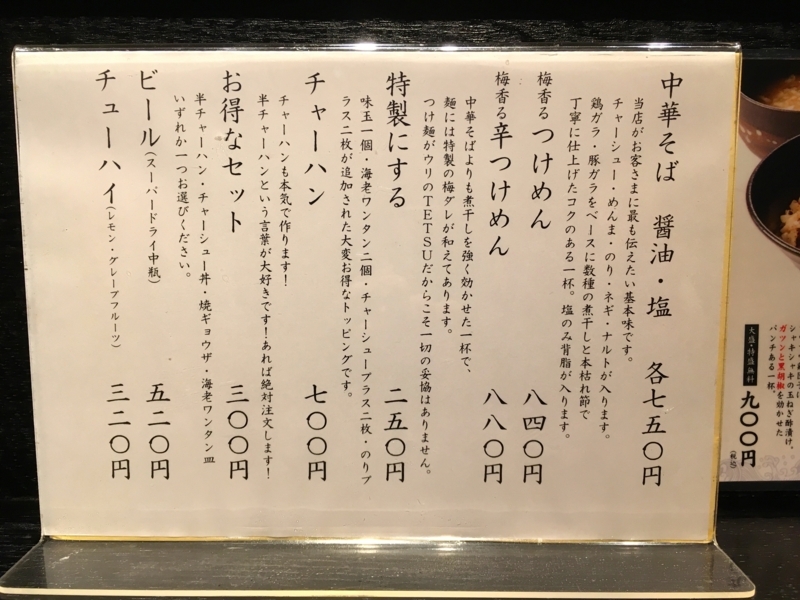 中華そば　醤油・塩　各七五〇円
当店がお客さまに最も伝えたい基本味です。
チャーシュー・めんま・のり・ネギ・ナルトが入ります。
鶏ガラ・豚ガラをベースに数種の煮干しと本枯れ節で
丁寧に仕上げたコクのある一杯。塩のみ背脂が入ります。
梅香るつけめん　八四〇円
梅香る辛つけめん　八八〇円
中華そばよりも煮干しを強く効かせた一杯で、
麺には特製の梅ダレが和えてあります。
つけ麺がウリのTETSUだからこそ一切の妥協はありません。
特製にする　二五〇円
味玉一個・海老ワンタン二個・チャーシュープラス二枚・のりプ
ラス二枚が追加された大変お得なトッピングです。
チャーハン　七〇〇円
チャーハンも本気で作ります！
半チャーハンという言葉が大好きです！あれば絶対注文します！
お得なセット　三〇〇円
半チャーハン・チャーシュー丼・焼ギョウザ・海老ワンタン皿
いずれか一つお選びください。
ビール（スーパードライ中瓶）　五二〇円
チューハイ（レモン・グレープフルーツ）　三二〇円
シャキシャキの玉ねぎ酢漬け。
ガツンと黒胡椒を効かせた
パンチある一杯。
大盛・特盛無料
九〇〇円
（税込）